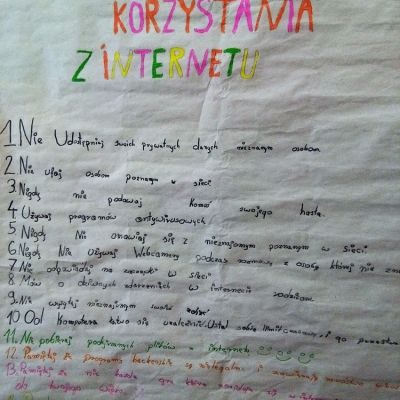 KORZYSTANIA
Z INTERNETU
1. Nie Udostępniaj swoich prywatnych danych nieznanym osobom
2. Nie ufaj osobom poznanym w sieci
3. Nigdy nie podawaj komuś swojego hasła.
4 Używaj programów antywirusowych.
5 Nigdy Ni umawiaj się z nieznajomym poznanym w sieci
6 Nigdy Nie Używaj Webcamery podczas rozmowy z osobą której nie zna
7 Nie odpowiadaj na zaczepki w sieci
8. Mów o dziwnych zdarzeniach w internecie rodzicom
9. Nie wysyłaj nieznajomym swoich zdjęć
10 Od Komputera łatwo się uzależnić. Ustal sobie limit i go
11. Nie pobieraj podejrzanych plików z internetu
12. Pamiętaj że programy hackerskie są nielegalne i
13. Pamiętaj że nie każda gra która znajduje się w
do twojego wieku